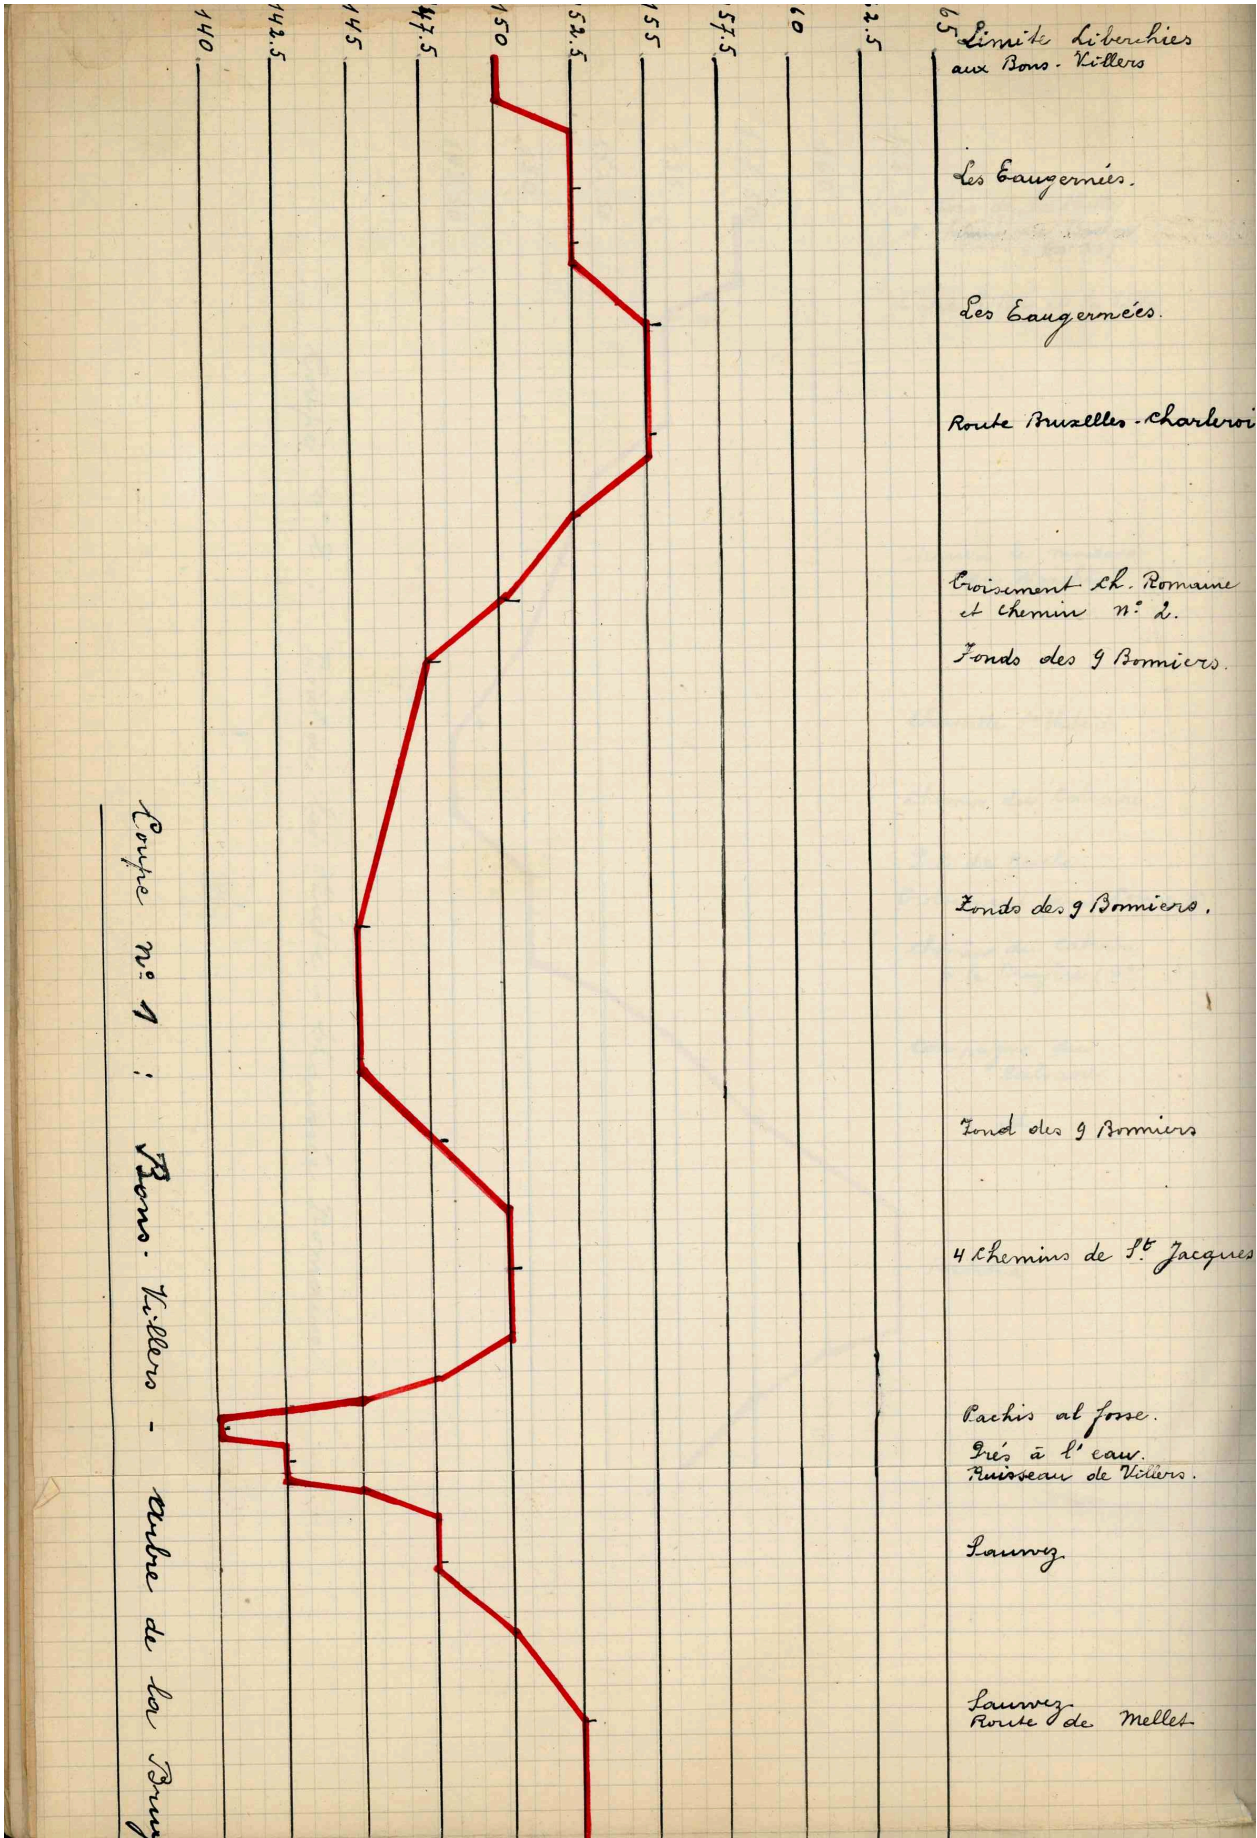 140
142.5
145
47.5
150
52.5
155
57.5
60
2.5
65
Limite Liberchies
aux Bons-Villers
Les Eaugerniés.
Les Eaugernéés.
Route Bruxelles-Charleroi
Croisement Ch. Romaine
et Chemin n° 2.
Fonds des 9 Bonniers.
Fonds des 9 Bonniers.
Fond des 9 Bonniers
4 Chemins de St Jacques
Pachis al fosse.
Prés à l'eau.
Ruisseau de Villers.
Sauvez
Sauvez
Route de Mellet
Coupe n° 1 : Bons-Villers - Arbre de la Bruy